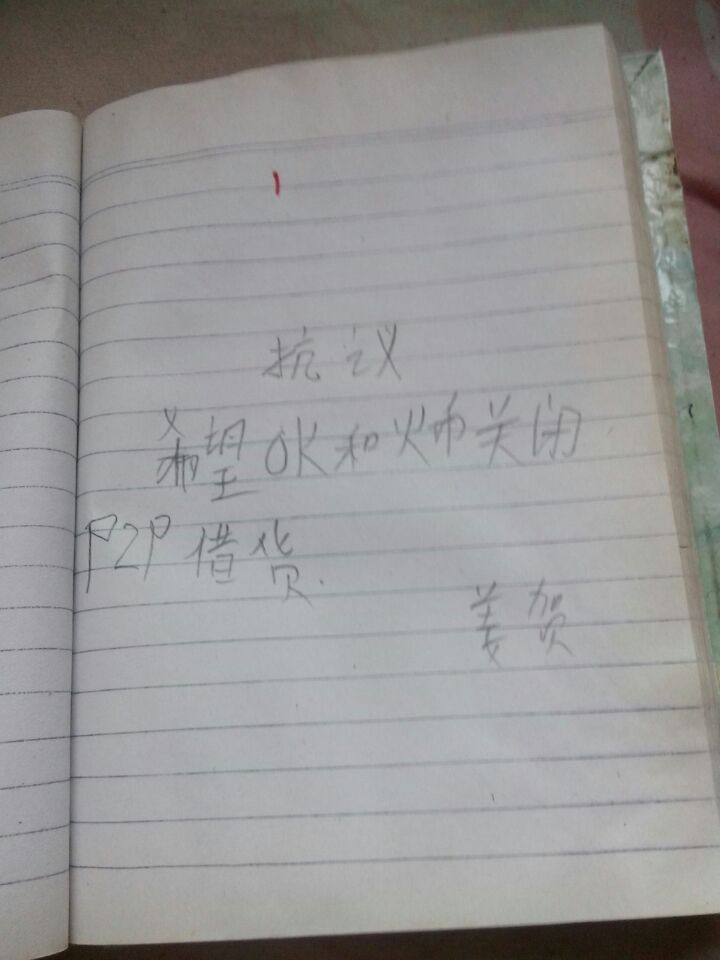 抗议
希望OK和火币关闭
P2P借贷.
姜贺